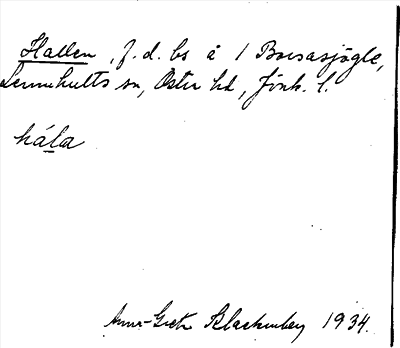 Hallen, f. d. bs å 1 Borsasjögle,
Lemnhults sn, Öster hd, Jönk. l.
hála
Anna-Greta Blackenberg 1934.